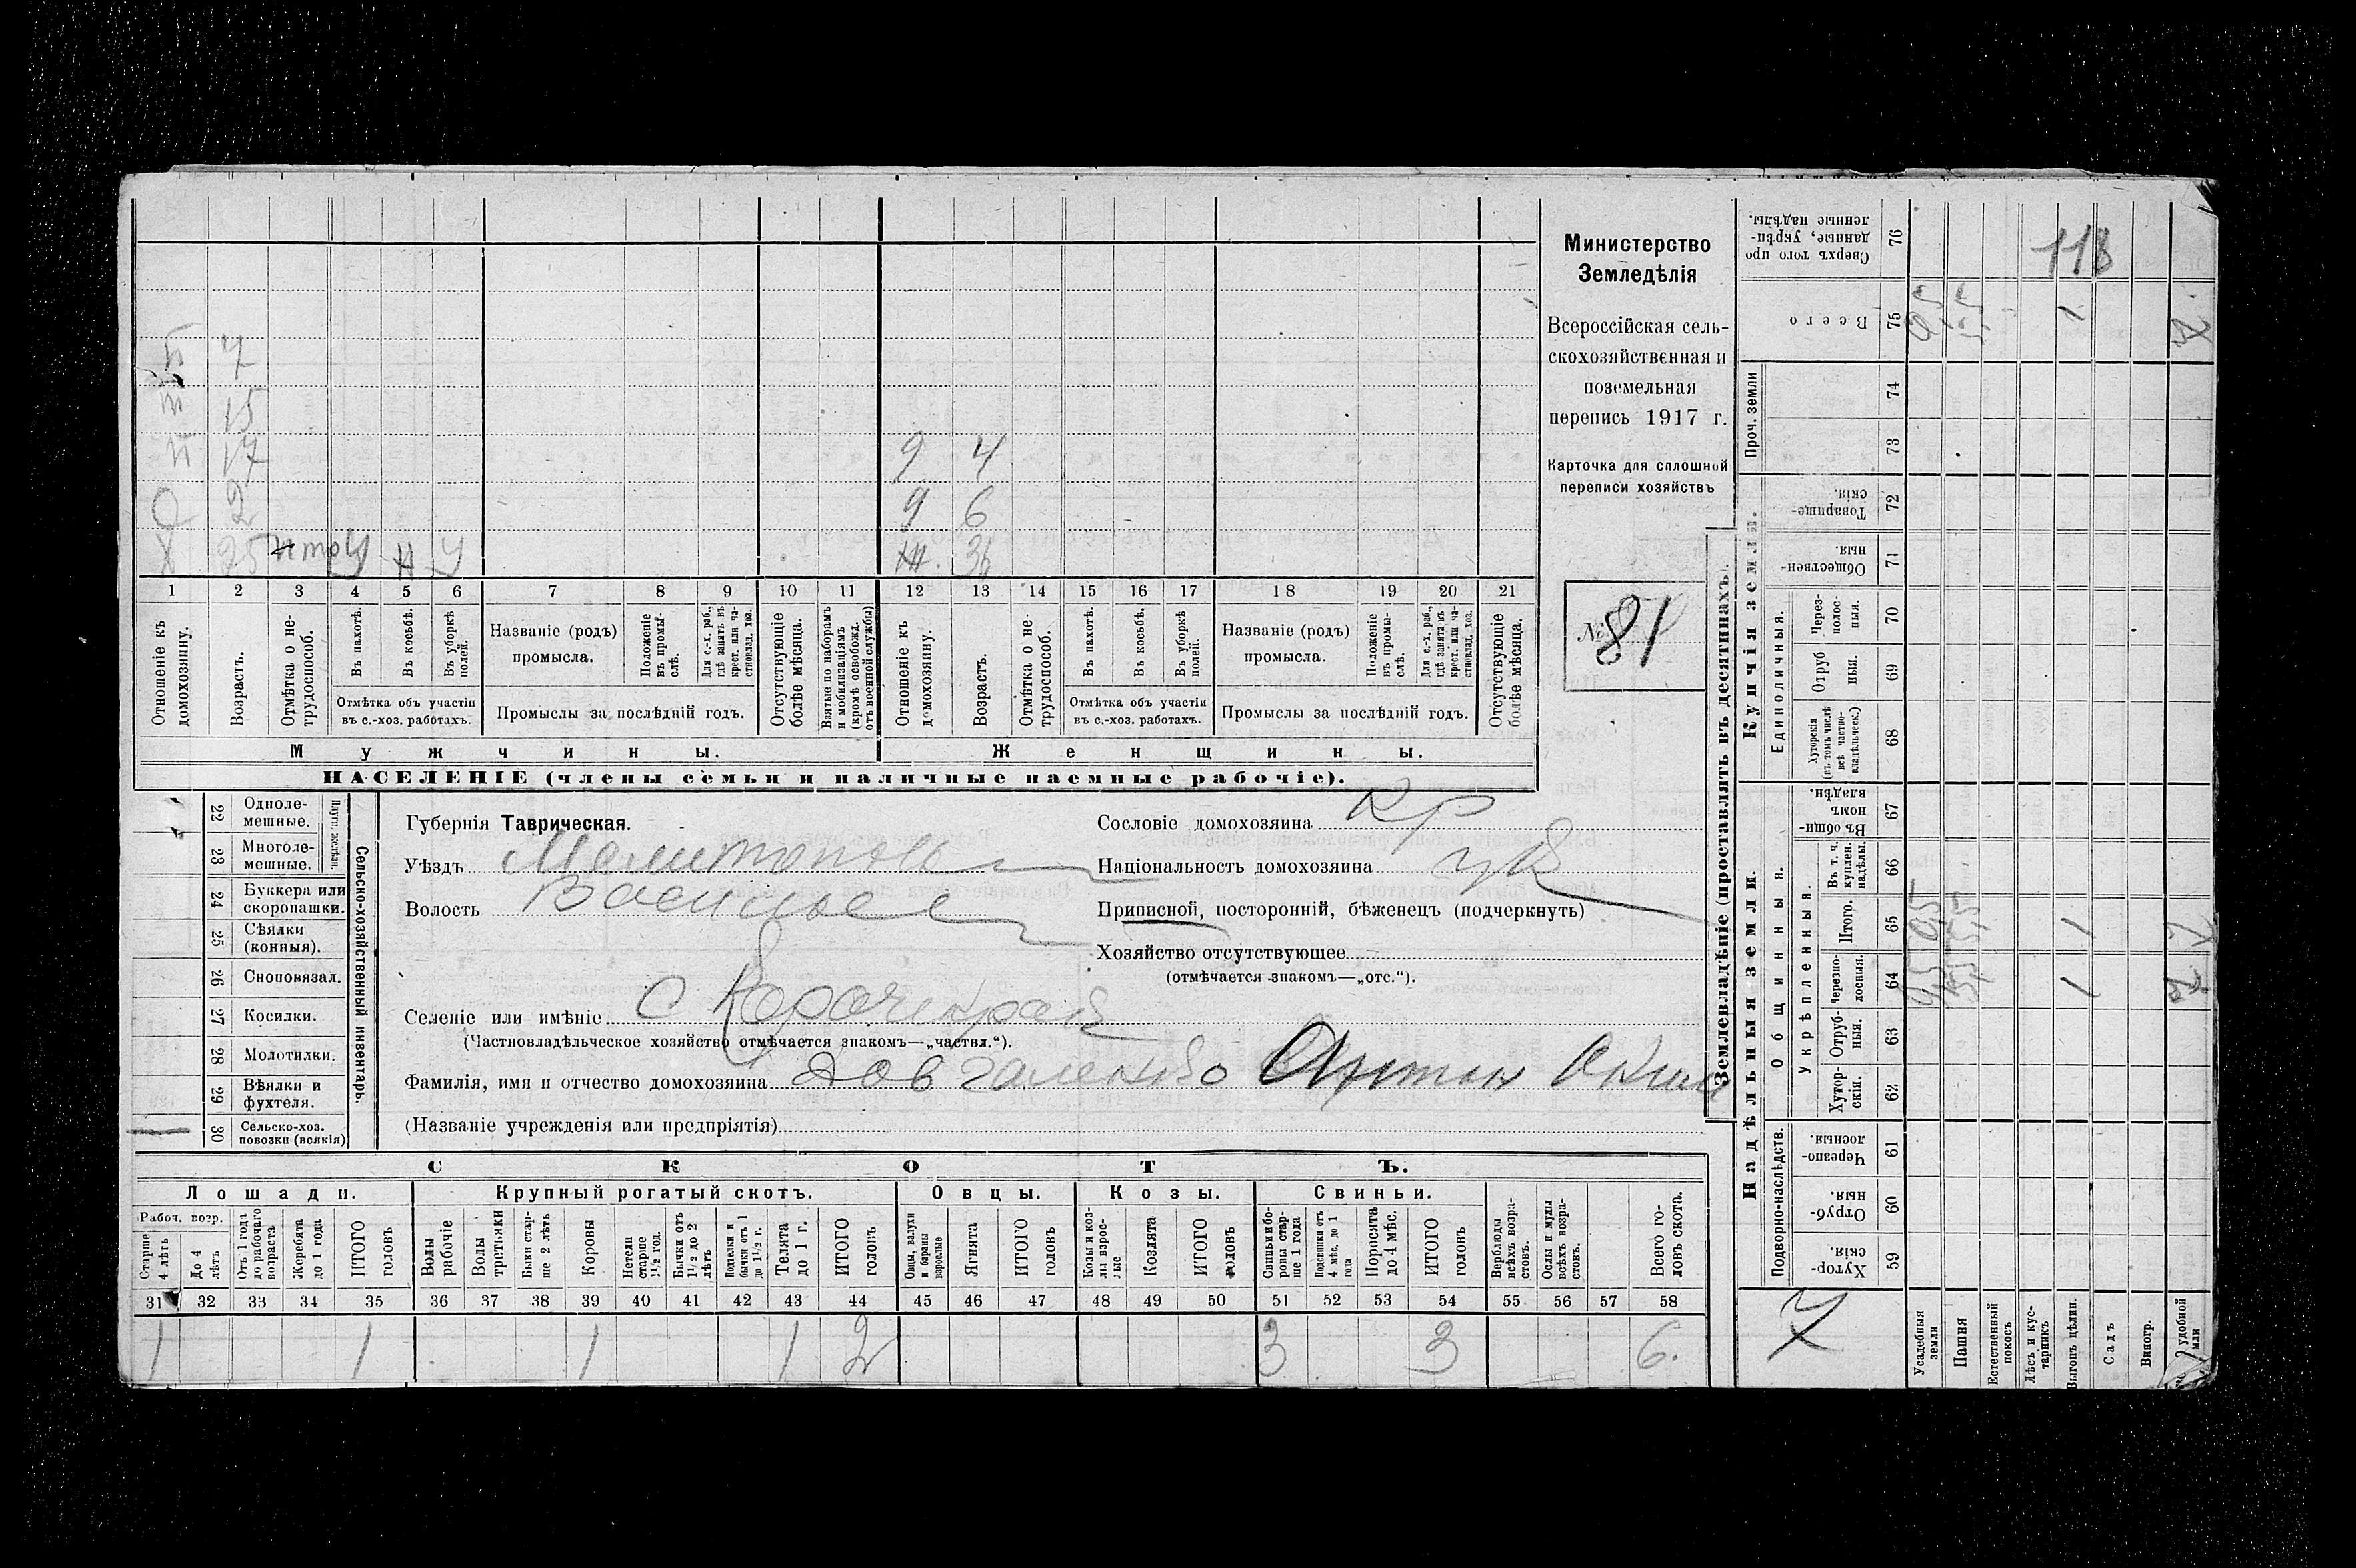 Министерство
Земледѣлія
Всероссійская сель-
скохозяйственная и
поземельная
перепись 1917 г.
Карточка для сплошной
переписи хозяйствъ
№ 81
7
15
17 9 4
2 9 6
У У
1 2 3 4 5 6 7 8 9 10 11 12 13 14 15 16 17 18 19 20 21
Отношеніе къ домохозяину.
Возрастъ.
Отмѣтка о не-трудоспособ.
Въ пахотѣ.
Въ косьбѣ.
Въ уборкѣ полей.
Отмѣтка объ участіи
въ с.-хоз. работахъ.
Названіе (родъ)
промысла.
Положеніе въ промы-слѣ.
Для с.-х. раб., гдѣ занятъ въ крест. или ча-стновлад. хоз.
Промыслы за послѣдній годъ.
Отсутствующіе болѣе мѣсяца.
Взятые по наборамъ и мобилизаціямъ (кромѣ освобожд. отъ военной службы)
Отношеніе къ домохозяину.
Возрастъ.
Отмѣтка о не-трудоспособ.
Въ пахотѣ.
Въ косьбѣ.
Въ уборкѣ полей.
Отмѣтка объ участіи
въ с.-хоз. работахъ.
Названіе (родъ)
промысла.
Положеніе въ промы-слѣ.
Для с.-х. раб., гдѣ занята въ крест. или ча-стновлад. хоз.
Промыслы за послѣдній годъ.
Отсутствующіе болѣе мѣсяца.
Мужчины. Женщины.
НАСЕЛЕНІЕ (члены семьи и наличные наемные рабочіе).
Сельско-хозяйственный инвентарь.
Плуги желѣзн.
22 Одноле-мешные.
23 Многоле-мешные.
24 Буккера или скоропашки.
25 Сѣялки (конныя).
26 Сноповязал.
27 Косилки.
28 Молотилки.
29 Вѣялки и фухтеля.
30 Сельско-хоз. повозки (всякія)
Губернія Таврическая.
Уѣздъ Мелитополь
Волость
Селеніе или имѣніе с
(Частновладѣльческое хозяйство отмѣчается знакомъ—„частвл.“).
Фамилія, имя и отчество домохозяина Довгаленко Антон Аким
(Названіе учрежденія или предпріятія)
Сословіе домохозяина кр
Національность домохозяина ук
Приписной, посторонній, бѣженецъ (подчеркнуть)
Хозяйство отсутствующее
(отмѣчается знакомъ—„отс.“).
СКОТЪ.
Лошади. Крупный рогатый скотъ. Овцы. Козы. Свиньи.
Рабоч. возр.
Старше 4 лѣтъ
До 4 лѣтъ
Отъ 1 года до рабочаго возраста
Жеребята до 1 года
ИТОГО головъ
Волы рабочіе
Волы третьяки
Быки стар-ше 2 лѣтъ
Коровы
Нетели старше 1½ год.
Бычки отъ 1½ до 2 лѣтъ
Подтелки и бычки отъ 1 до 1½ г.
Телята до 1 г.
ИТОГО головъ
Овцы, валухи и бараны взрослые
Ягнята
ИТОГО головъ
Козы и коз-лы взрос-лые
Козлята
ИТОГО головъ
Свиньи и бо-ровы стар-ше 1 года
Подсвинки отъ 4 мѣс. до 1 года
Поросята до 4 мѣс.
ИТОГО головъ
Верблюды всѣхъ возра-стовъ.
Ослы и мулы всѣхъ возра-стовъ.
Всего го-ловъ скота.
31 32 33 34 35 36 37 38 39 40 41 42 43 44 45 46 47 48 49 50 51 52 53 54 55 56 57 58
1 1 1 1 2 3 3 6.
Землевладѣніе (проставлять въ десятинахъ).
Надѣльныя земли.
Купчія земли.
Проч. земли
Подворно-наслѣдств.
Общинныя.
Укрѣпленныя.
Единоличныя.
Сверхъ того про данные, укрѣп-ленные надѣлы. 76
Всего 75
74
73
Товарище-скія. 72
Обществен-ныя. 71
Через-полос-ныя. 70
Отруб ныя. 69
Хуторскія (въ томъ числѣ всѣ частно-владѣльческ.) 68
Въ общи-номъ владѣн. 67
Въ т. ч. куплен. надѣлы. 66
Итого. 65
Черезпо-лосныя. 64
Отруб-ныя. 63
Хутор-скія. 62
Черезпо-лосныя. 61
Отруб-ныя. 60
Хутор-скія. 59
Усадебныя земли
Пашня
Естественный покосъ
Лѣсъ и кус-тарникъ
Выгонъ цѣлин.
Садъ
Виногр.
удобной
118
1
1
1